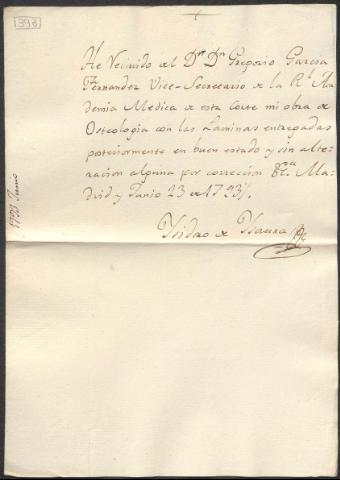 398
He Recivido del Dr. Dn. Gregorio Garcia
Fernandez Vice-Secretario de la Rl. Aca
demia Medica de esta Corte mi obra de
Osteologia con las Laminas entregadas
posteriormente en buen estado y sin alte-
racion alguna por correccion &ca. Ma-
drid y Junio 23 de 1793.
Isidro de Isaura
1793 Junio